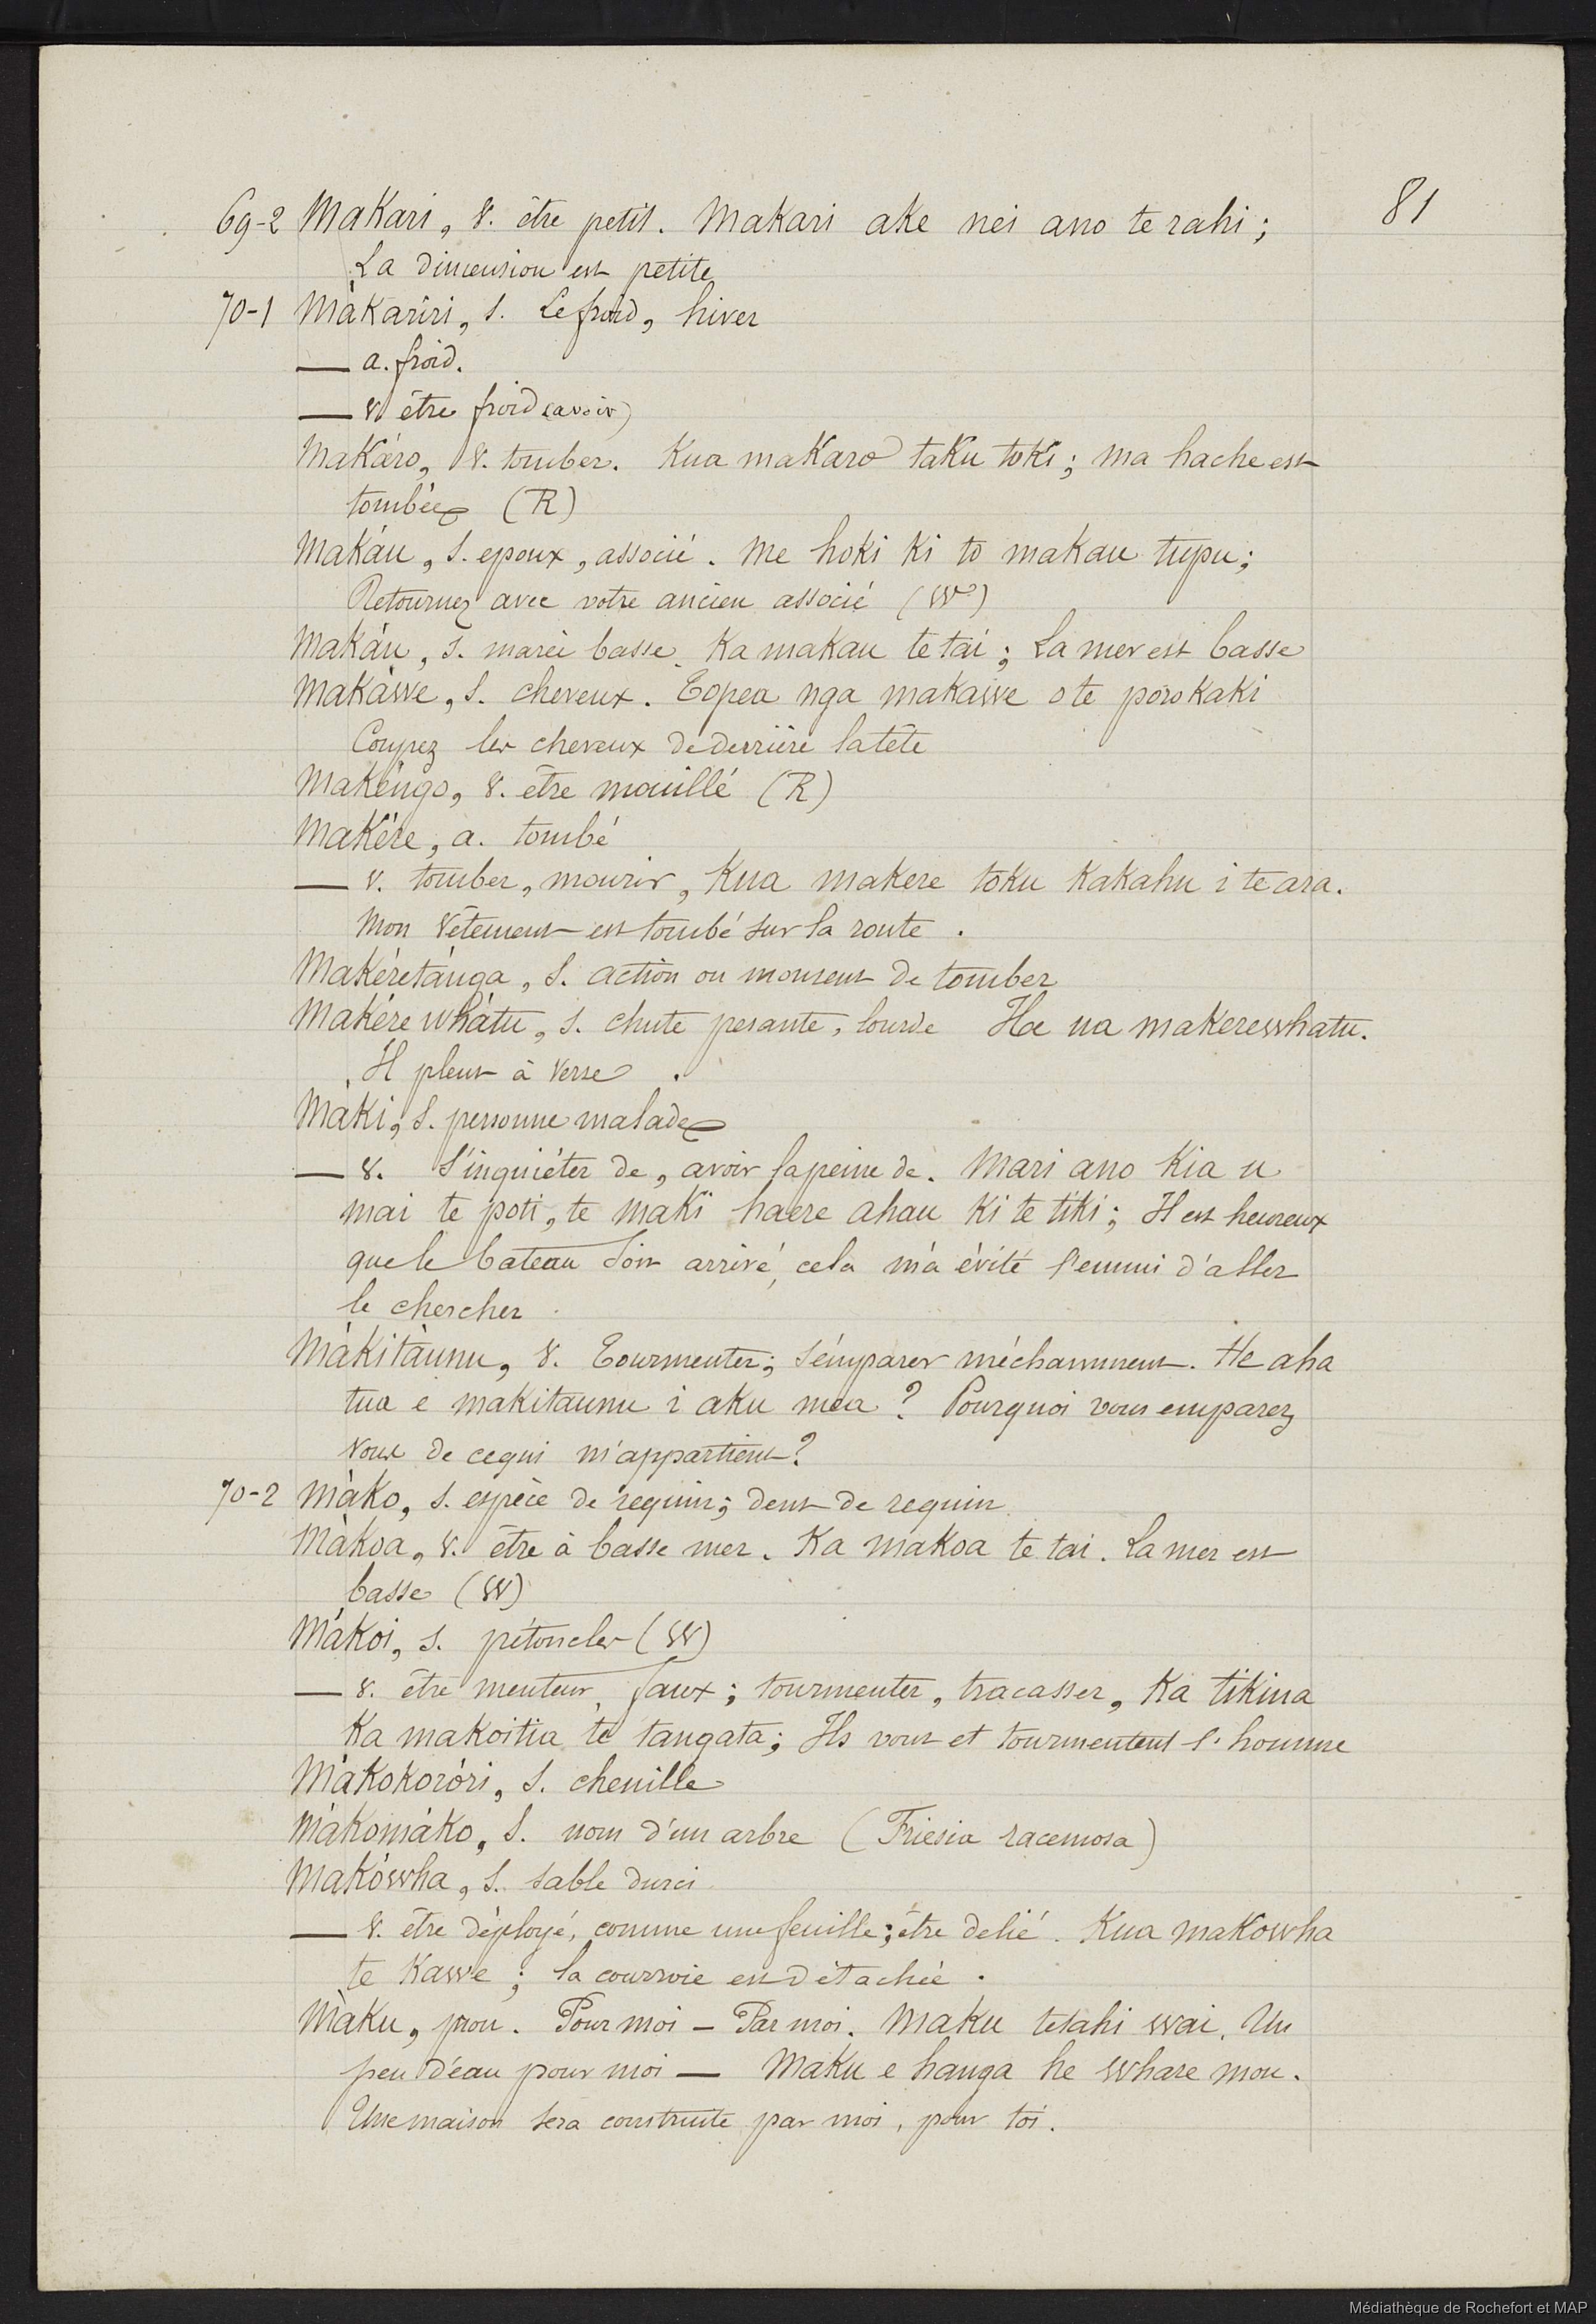 81
69-2 Makari, v. être petit. Makari ake nei ano te rahi;
La dimension est petite
70-1 Màkariri, s. Le froid, hiver
— a. froid.
— v. être froid (avoir)
Makáro, v. tomber. Kua makaro taku toki; ma hache est
tombée (R)
Makáu, s. epoux, associé. Me hoki ki to makau tupu;
Retournez avec votre ancien associé (W)
Makáu, s. mareè basse. Ka makau te tai; La mer est basse
Makáwe, s. cheveux. Topea nga makawe o te porokaki
Coupez les cheveux de derrière la tête
Makéngo, v. être mouillé (R)
Makére, a. tombé
— v. tomber, mourir, Kua makere toku kakahu i te ara.
Mon vêtement est tombé sur la route.
Makéretánga, s. action ou moment de tomber
Makérewhátu, s. chute pesante, lourde He ua makerewhatu.
Il pleut à verse.
Màki, s. personne malade
— v. S'inquiéter de, avoir la peine de. Mari ano kia u
mai te poti, te maki haere ahau ki te tiki; Il est heureux
que le bateau soit arrivé, cela m'a évité l'ennui d'aller
le chercher.
Màkitàunu, v. Tourmenter; s'emparer méchamment. He aha
tua e makitaunu i aku mea? Pourquoi vous emparez
vous de ce qui m'appartient?
70-2 Màko, s. espèce de requin; dent de requin
Màkoa, v. être à basse mer. Ka makoa te tai. La mer est
basse (W)
Mákoi, s. pétoncles (W)
— v. être menteur, faux; tourmenter, tracasser, Ka tikina
Ka makoitia te tangata; Ils vont et tourmentent l'homme
Màkokoróri, s. chenille
Màkomáko, s. nom d'un arbre (Friesia racemosa)
Makówha, s. sable durci
— v. être déployé, comme une feuille; être delié. Kua makowha
te kawe; la courroie est détachée.
Màku, pron. Pour moi – Par moi. Maku tetahi wai. Un
peu d'eau pour moi — Maku e hanga he whare mou.
Une maison sera construite par moi, pour toi.
Médiathèque de Rochefort et MAP